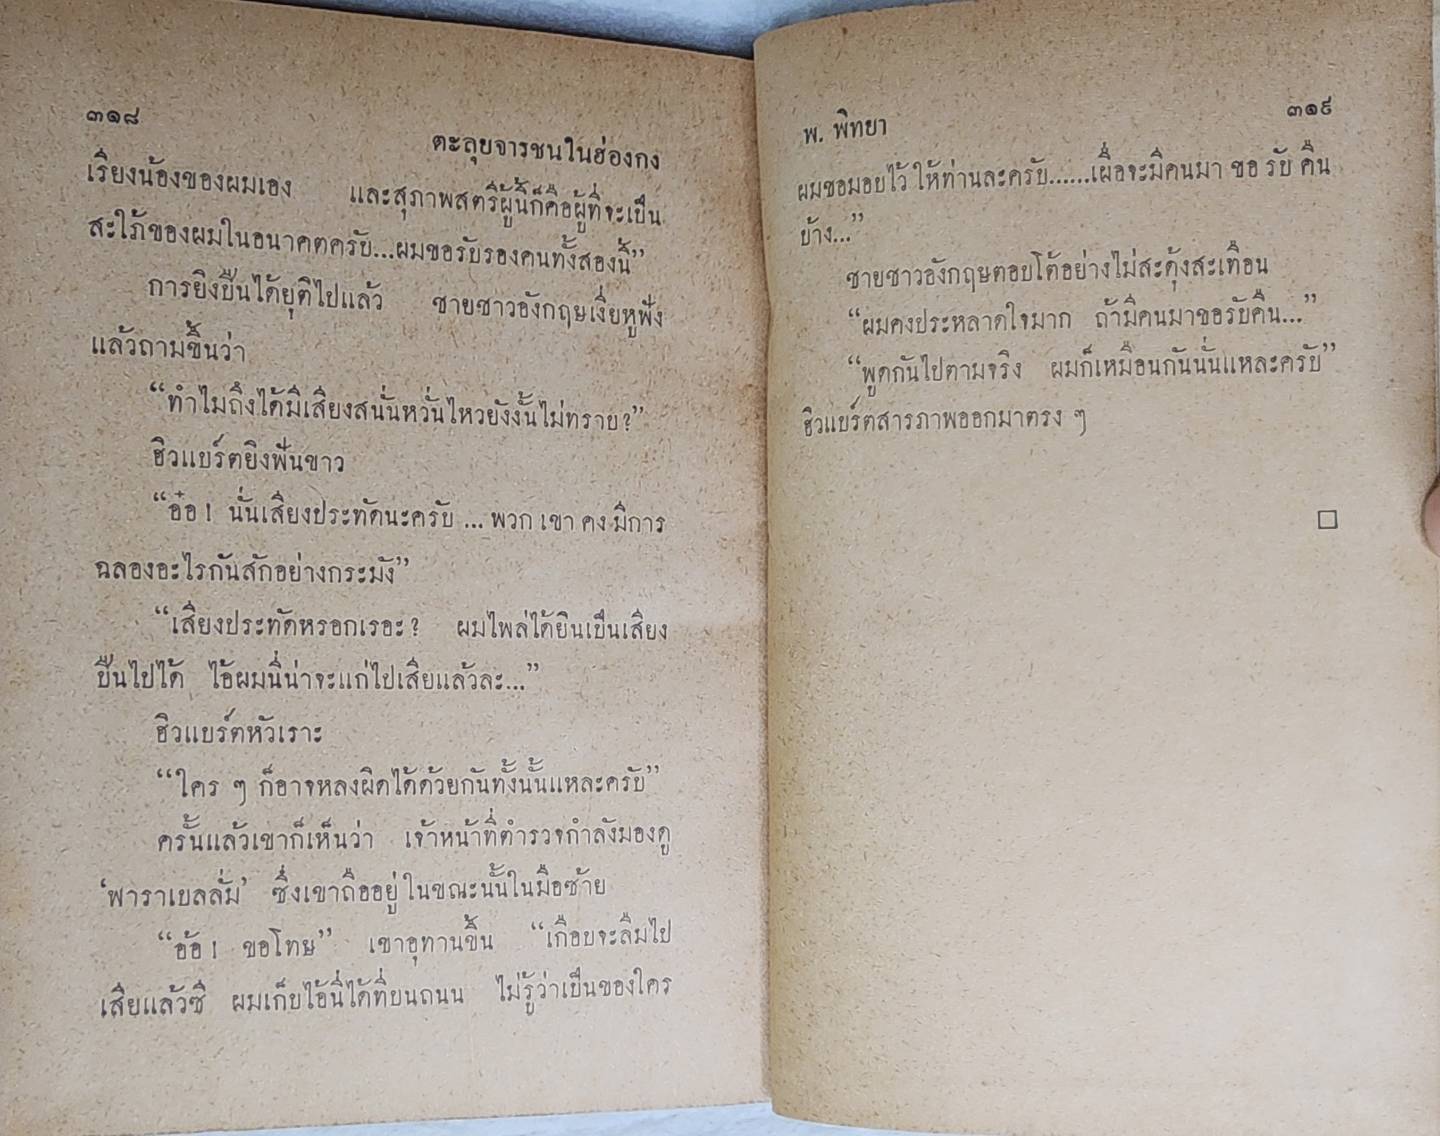 ๓๑๘
ตะลุยจารชนในฮ่องกง
เรียงน้องของผมเอง และสุภาพสตรีผู้นี้ก็คือผู้ที่จะเป็น
สะใภ้ของผมในอนาคตครับ...ผมขอรับรองคนทั้งสองนี้”
การยิงปืนได้ยุติไปแล้ว ชายชาวอังกฤษเงี่ยหูฟัง
แล้วถามขึ้นว่า
“ทำไมถึงได้มีเสียงสนั่นหวั่นไหวยังงั้นไม่ทราบ?”
ฮิวแบร์ตยิงฟันขาว
“อ๋อ! นั่นเสียงประทัดนะครับ ... พวก เขา คง มีการ
ฉลองอะไรกันสักอย่างกระมัง”
“เสียงประทัดหรอกเรอะ? ผมไพล่ได้ยินเป็นเสียง
ปืนไปได้ ไอ้ผมนี่น่าจะแก่ไปเสียแล้วละ...”
ฮิวแบร์ตหัวเราะ
“ใคร ๆ ก็อาจหลงผิดได้ด้วยกันทั้งนั้นแหละครับ”
ครั้นแล้วเขาก็เห็นว่า เจ้าหน้าที่ตำรวจกำลังมองดู
‘พาราเบลลั่ม’ ซึ่งเขาถืออยู่ในขณะนั้นในมือซ้าย
“อ้อ! ขอโทษ” เขาอุทานขึ้น “เกือบจะลืมไป
เสียแล้วซี ผมเก็บไอ้นี่ได้ที่บนถนน ไม่รู้ว่าเป็นของใคร
พ. พิทยา
๓๑๙
ผมขอมอบไว้ ให้ท่านละครับ......เผื่อจะมีคนมา ขอ รับ คืน
บ้าง...”
ชายชาวอังกฤษตอบโต้อย่างไม่สะดุ้งสะเทือน
“ผมคงประหลาดใจมาก ถ้ามีคนมาขอรับคืน...”
“พูดกันไปตามจริง ผมก็เหมือนกันนั่นแหละครับ”
ฮิวแบร์ตสารภาพออกมาตรง ๆ